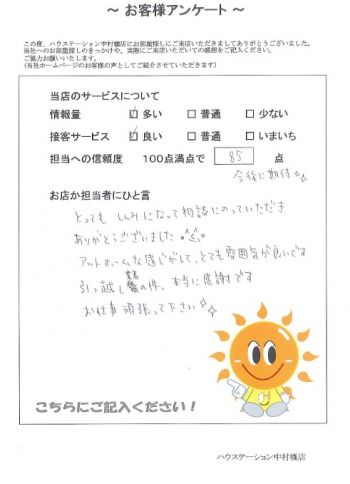 ～ お客様アンケート ～
この度、ハウステーション中村橋店にお部屋探しにご来店いただきましてありがとうございました。
当社へのお部屋探しのきっかけや、実際にご来店いただいての感想をご記入ください。
ご協力お願いいたします。
(当社ホームページのお客様の声としてご紹介させていただきます)
当店のサービスについて
情報量 ☑ 多い □ 普通 □ 少ない
接客サービス ☑ 良い □ 普通 □ いまいち
担当への信頼度 100点満点で 85 点
今後に期待
お店か担当者にひと言
とっても しんみになって相談にのっていただき
ありがとうございました
アットホームな感じがして、とても雰囲気が良いです
引っ越し業者の件、本当に感謝です
お仕事 頑張って下さい
こちらにご記入ください！
ハウステーション中村橋店